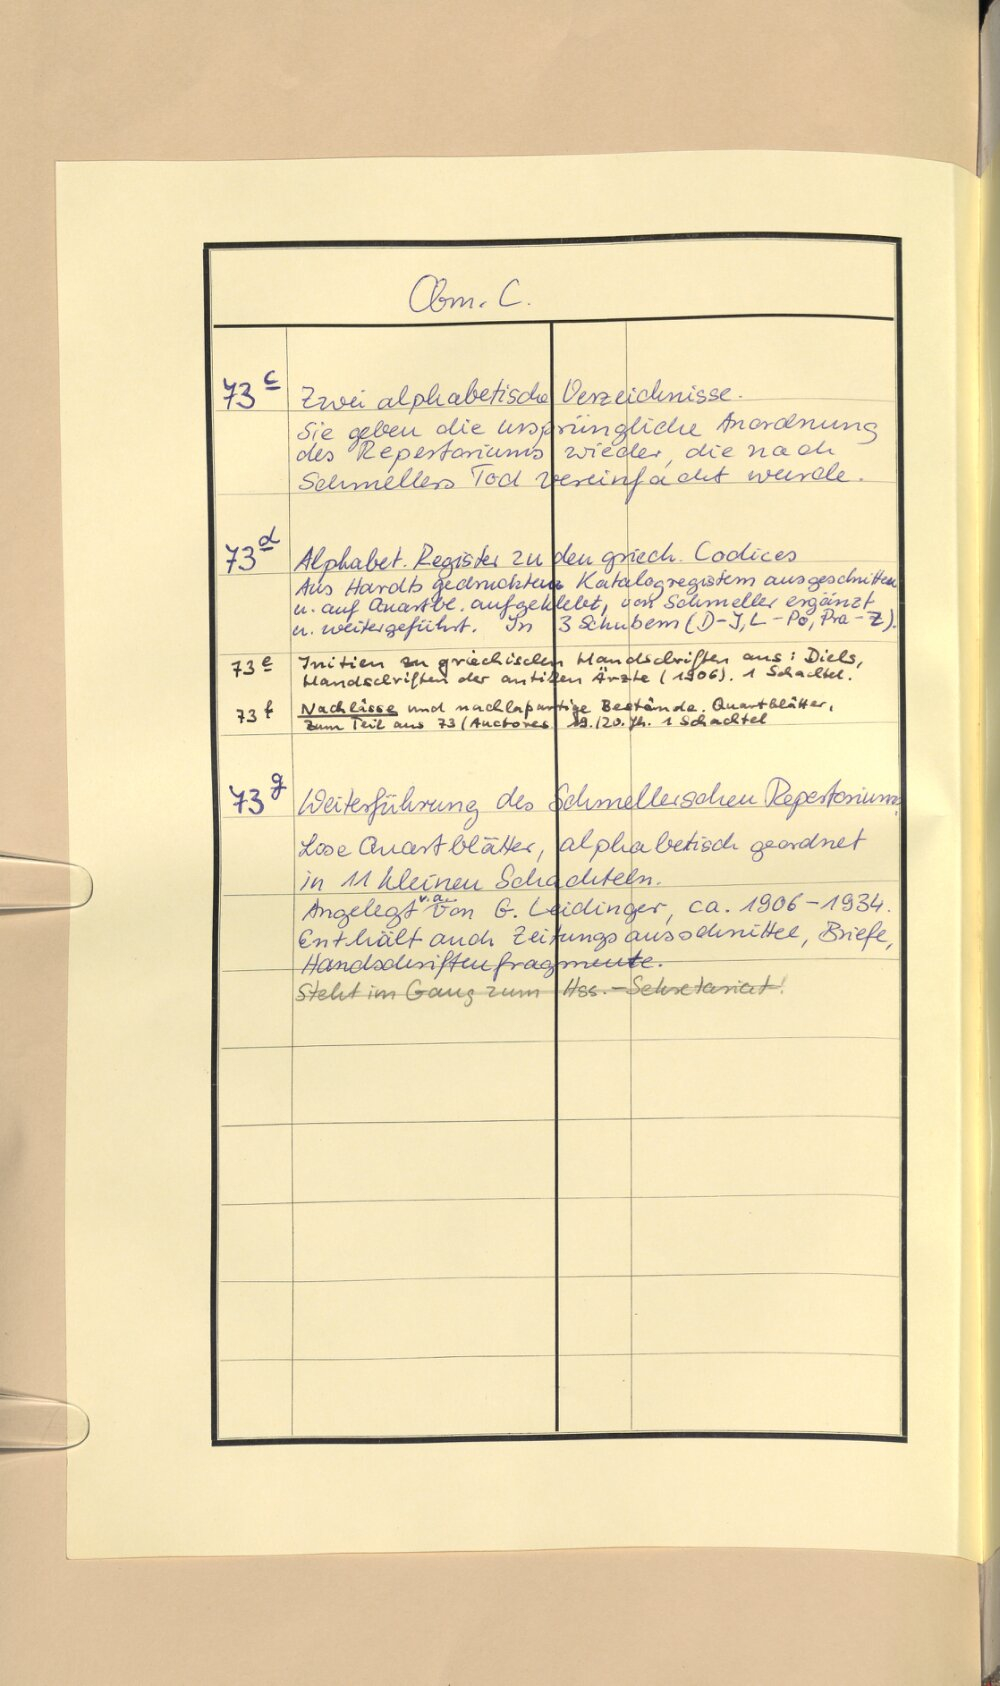 Cbm. C.
73 c Zwei alphabetische Verzeichnisse.
Sie geben die ursprüngliche Anordnung
des Repertoriums wieder, die nach
Schmellers Tod vereinfacht wurde.
73 d Alphabet. Register zu den griech. Codices
Aus Hardts gedrucktem Katalogregistern ausgeschnitten
u. auf Quartbl. aufgeklebt, von Schmeller ergänzt
u. weitergeführt. In 3 Schubern (D-J, L-Po, Pra-Z).
73 e Initien zu griechischen Handschriften aus: Diels,
Handschriften der antiken Ärzte (1906). 1 Schachtel.
73 f Nachlässe und nachlaßartige Bestände. Quartblätter,
zum Teil aus 73 (Auctores 19./20. Jh. 1 Schachtel
73 g Weiterführung des Schmellerschen Repertoriums
Lose Quartblätter, alphabetisch geordnet
in 11 kleinen Schachteln.
Angelegt v.a. von G. Leidinger, ca. 1906-1934.
Enthält auch Zeitungsausschnitte, Briefe,
Handschriftenfragmente.
Steht im Gang zum Hss.-Sekretariat!